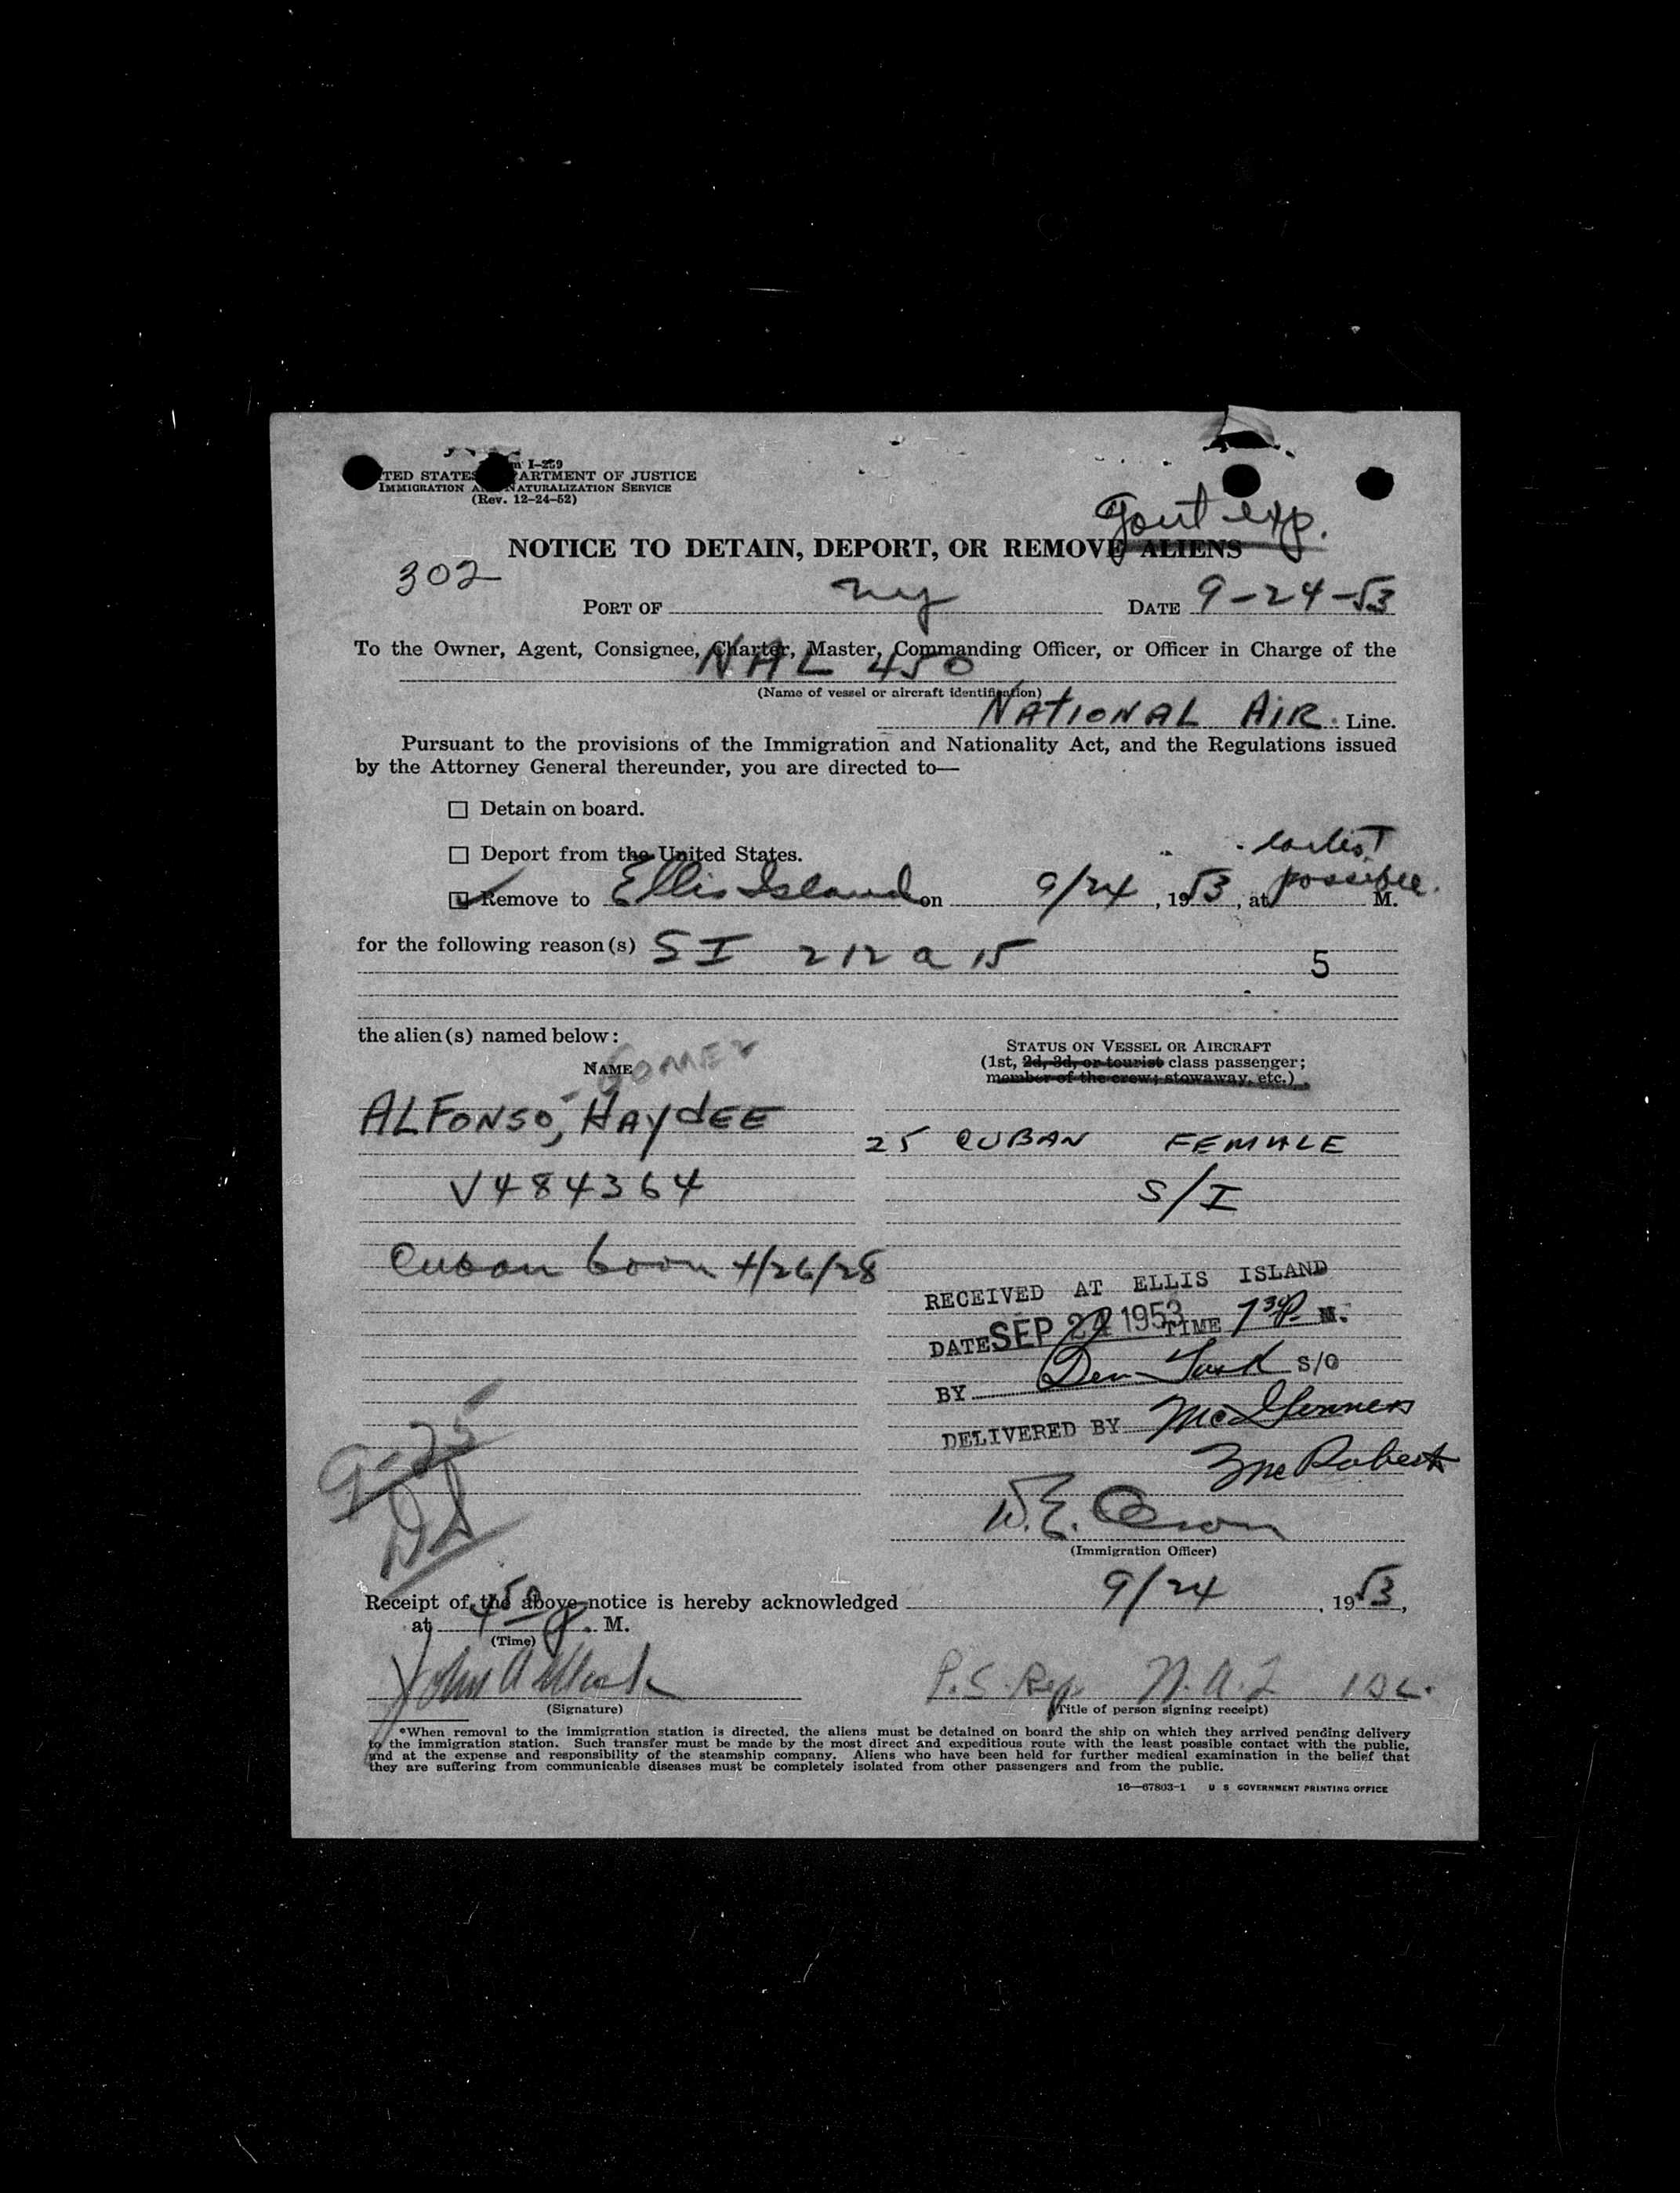 I-259
TED STATES ARTMENT OF JUSTICE
IMMIGRATION A NATURALIZATION SERVICE
(Rev. 12-24-52)
Gov't exp.
NOTICE TO DETAIN, DEPORT, OR REMOVE ALIENS
302
PORT OF NY DATE 9-24-53
To the Owner, Agent, Consignee, Charter, Master, Commanding Officer, or Officer in Charge of the
NAL 450
(Name of vessel or aircraft identification)
NATIONAL AIR Line.
Pursuant to the provisions of the Immigration and Nationality Act, and the Regulations issued
by the Attorney General thereunder, you are directed to—
Detain on board.
Deport from the United States.
earliest
Remove to Ellis Island on 9/24, 1953, at possible. M.
for the following reason(s) SI 212 a 15
5
the alien(s) named below:
NAME
GOMEZ
STATUS ON VESSEL OR AIRCRAFT
(1st, 2d, 3d, or tourist class passenger;
member of the crew; stowaway, etc.)
ALFONSO, HAYDEE
25 CUBAN FEMALE
V484364
S/I
Cuban born 4/26/28
RECEIVED AT ELLIS ISLAND
DATE SEP 24 1953 TIME 7 30 P M.
BY S/O
DELIVERED BY
9-25
(Immigration Officer)
Receipt of the above notice is hereby acknowledged 9/24, 1953,
at 4 50 p. M.
(Time)
John A
P.S. Rep. N.A.L
(Signature)
(Title of person signing receipt)
*When removal to the immigration station is directed, the aliens must be detained on board the ship on which they arrived pending delivery
to the immigration station. Such transfer must be made by the most direct and expeditious route with the least possible contact with the public,
and at the expense and responsibility of the steamship company. Aliens who have been held for further medical examination in the belief that
they are suffering from communicable diseases must be completely isolated from other passengers and from the public.
16—67803-1 U S GOVERNMENT PRINTING OFFICE